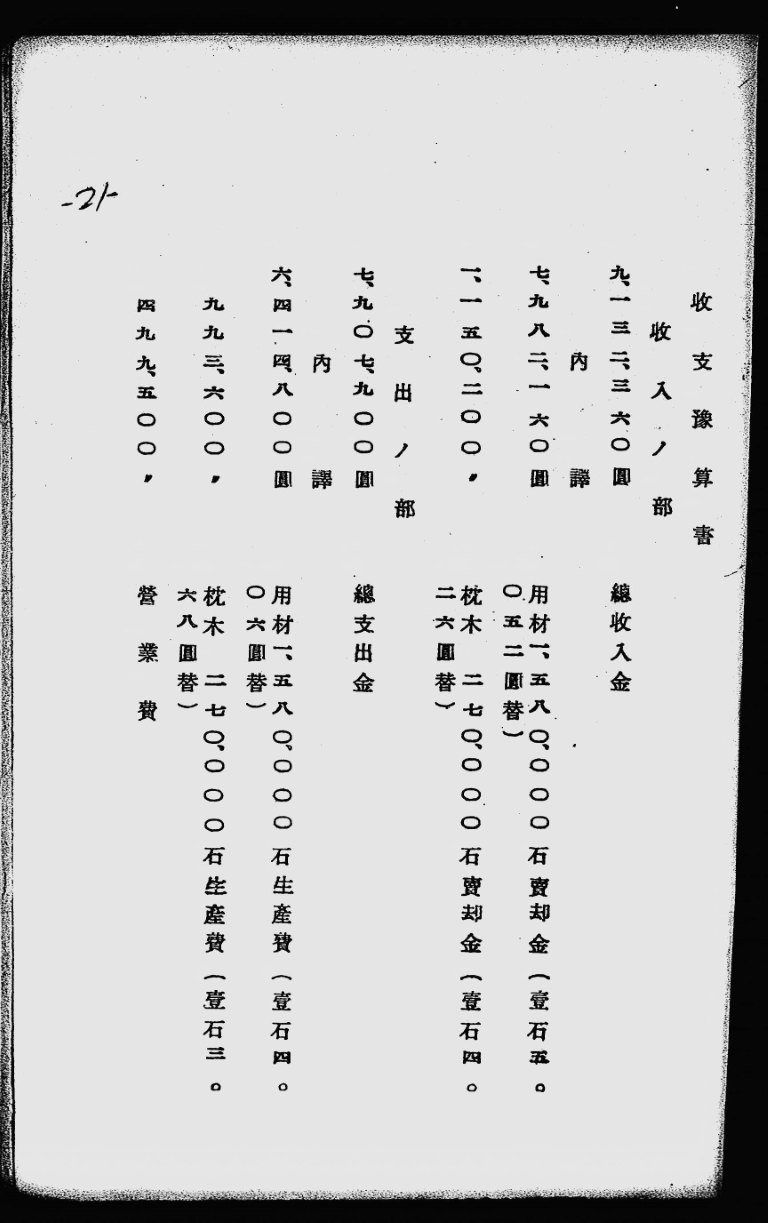 收支豫算書
收入ノ部
九、一三二、三六〇圓 總收入金
內譯
七、九八二、一六〇圓 用材一、五八〇、〇〇〇石賣却金(壹石五。
〇五二圓替)
一、一五〇、二〇〇〃 枕木 二七〇、〇〇〇石賣却金(壹石四。
二六圓替)
支出ノ部
七、九〇七、九〇〇圓 總支出金
內譯
六、四一四、八〇〇圓 用材一、五八〇、〇〇〇石生產費(壹石四。
〇六圓替)
九九三、六〇〇〃 枕木 二七〇、〇〇〇石生產費(壹石三。
六八圓替)
四九九、五〇〇〃 營業費
-21-